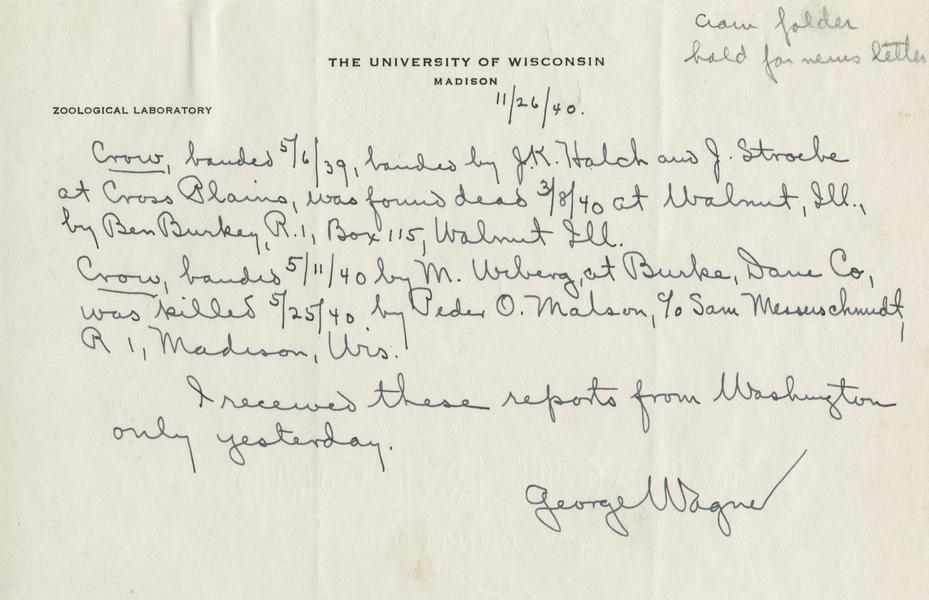 crow folder
hold for news letter
THE UNIVERSITY OF WISCONSIN
MADISON
ZOOLOGICAL LABORATORY
11/26/40.
Crow, banded 5/6/39, banded by J.K. Halch and J. Stroebe
at Cross Plains, was found dead 3/8/40 at Walnut, Ill.,
by Ben Burkey, R.1, Box 115, Walnut Ill.
Crow, banded 5/11/40 by M. Weberg, at Burke, Dane Co,
was killed 5/25/40 by Peder O. Malson, c/o Sam Messerschmidt,
R 1, Madison, Wis.
I received these reports from Washington
only yesterday.
George Wagner